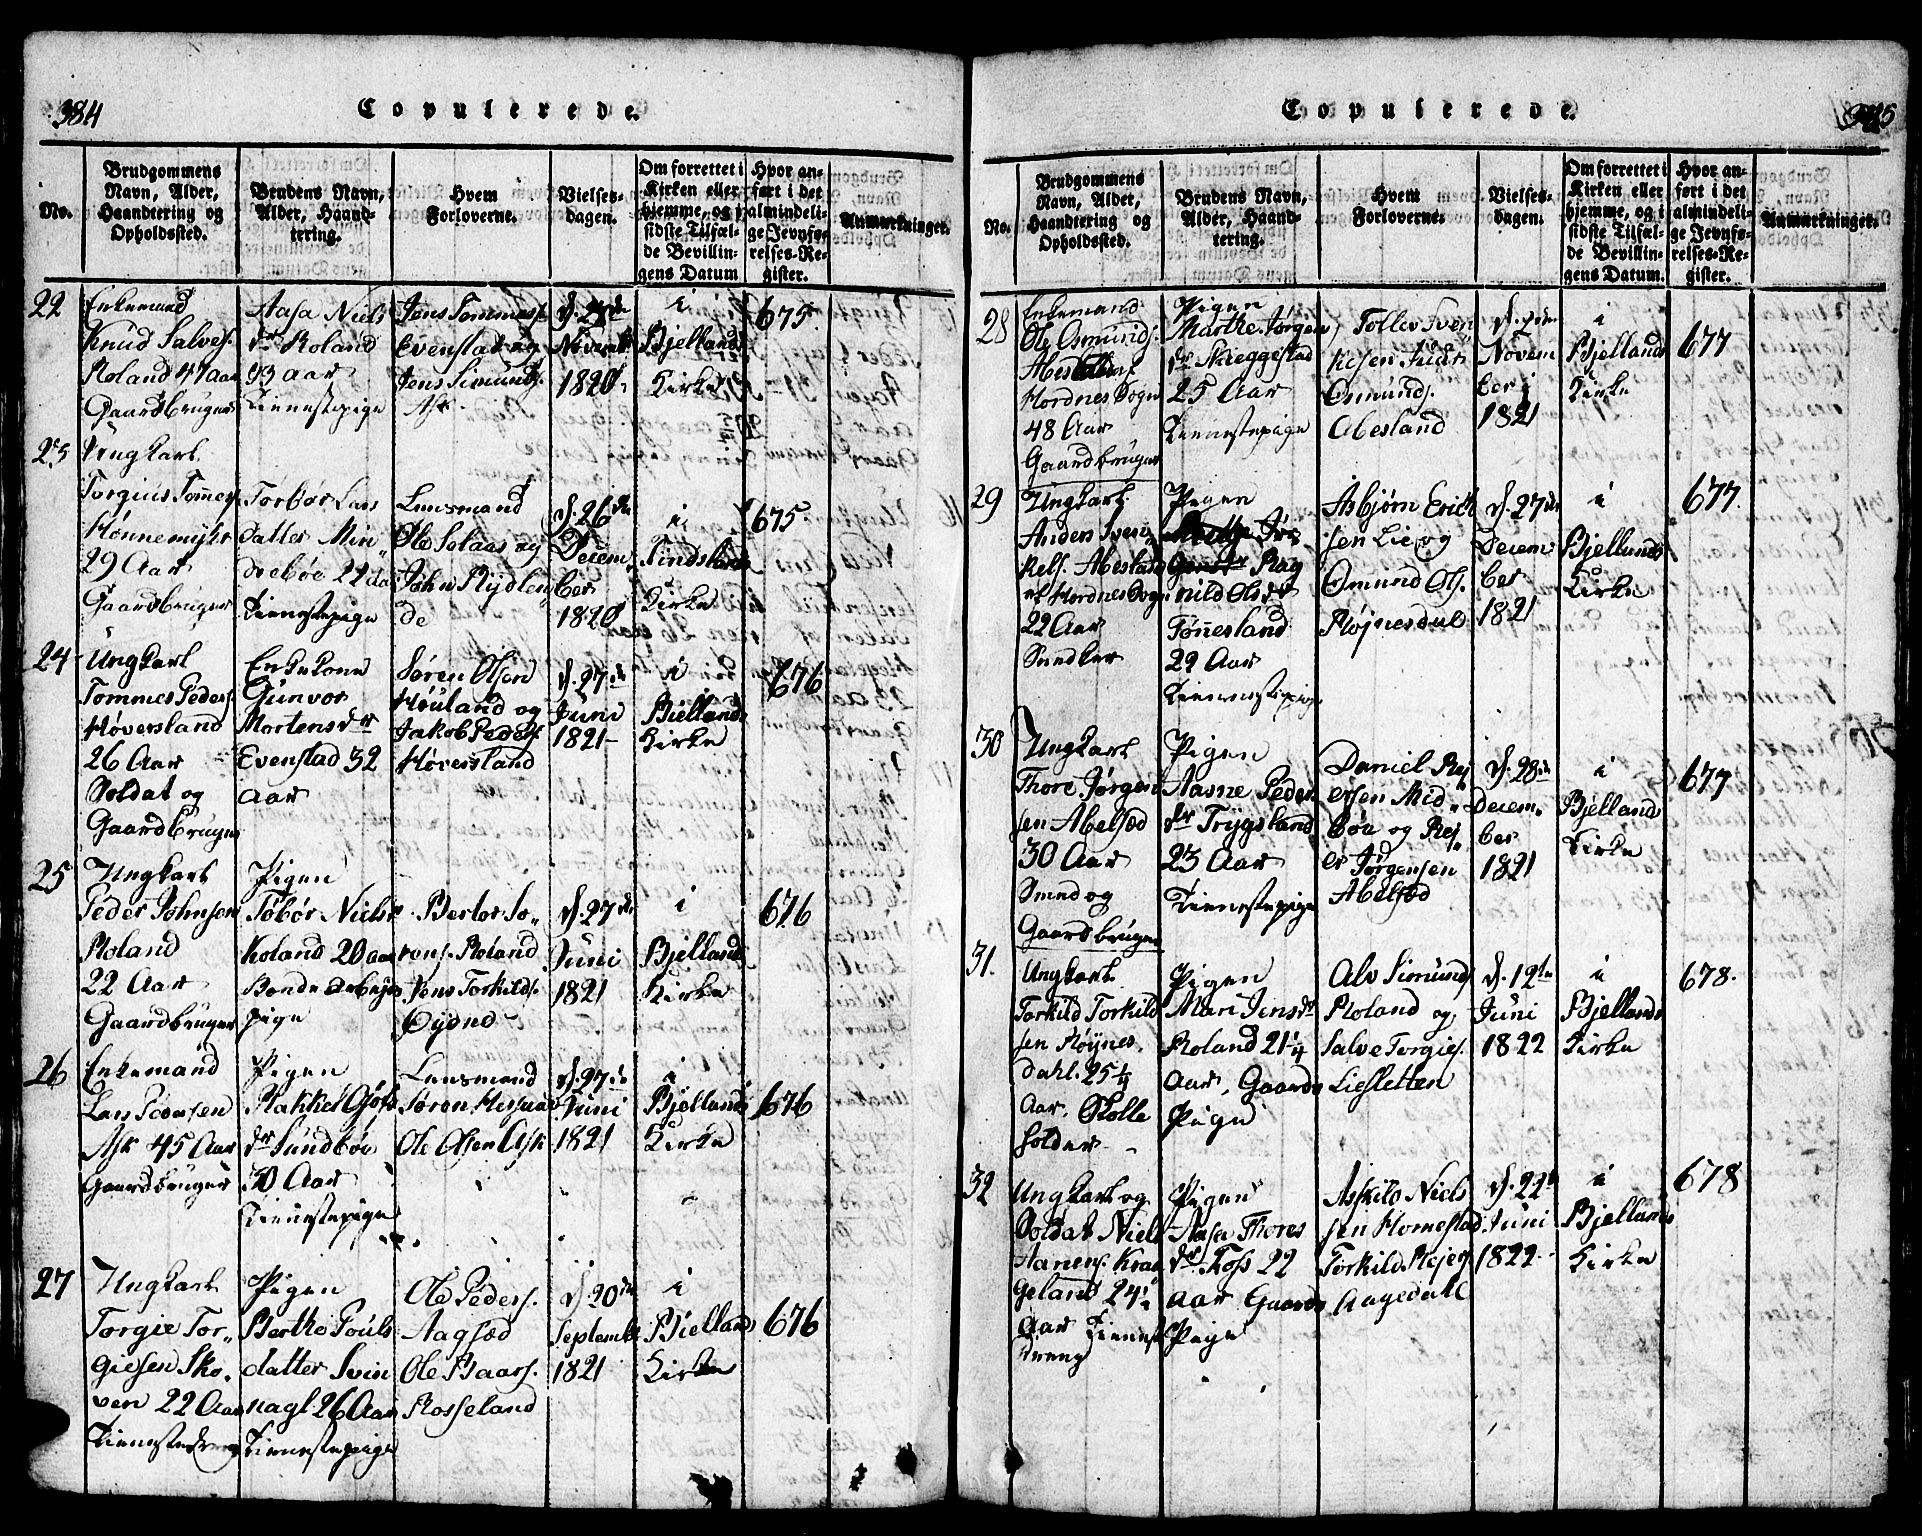 384
Copulerede.
No.
Brudgommens
Navn, Alder,
Haandtering og
Opholdssted.
Brudens Navn,
Alder, Haand-
tering.
Hvem
Forloverne.
Vielses-
dagen.
Om forrettet i
Kirken eller
hjemme, og i
sidste Tilfæl-
de Bevillin-
gens Datum
Hvor an-
ført i det
almindeli-
ge Jevnfø-
relses-Re-
gister.
Anmærkninger.
22
Enkemand
Knud Salves.
Roland 47 Aar
Gaardbruger
Aasa Niels
dr Roland
93 aar
Tienestepige
Jens Tommess.
Evenstad og
Jens Simunds.
Ask
1820
i
Bjellands
Kirke
675.
23
Ungkarl
Torgius Tomes.
Hønnemyhr
29 Aar
Gaardbruger
Torbør Lars
datter Min
drebøe 22 aar
Tienestepige
Lensmand
Ole Solaas og
John Rydlen
de
d. 26de
Decem
ber
1820
i
Findslands
Kirke
675.
24
Ungkarl
Tommes Peders.
Høversland
26 Aar
Soldat og
Gaardbruger
Enkekone
Gunvor
Mortensdr
Evenstad 32
aar
Søren Olsen
Høuland og
Jakob Peders.
Høversland
d. 27de
Juni
1821
i
Bjellands
Kirke
676
25
Ungkarl
Peder Johnsen
Roland
22 Aar
Gaardbruger
Pigen
Tobør Niels
Roland 20 aar
Bondearbejds
pige
Berlor So-
rens. Roland
Jens Torkilds.
Øydnd
d. 27de
Juni
1821
i
Bjellands
Kirke
676
26
Enkemand
Lars Pedersen
Ask 45 Aar
Gaardbruger
Pigen
Rakkel
dr Sundbøe
30 Aar
Tienestepige
Lensmand
Søren
Ole Olsen Ask
d. 27de
Juni
1821
i
Bjellands
Kirke
676
27
Ungkarl
Torgie Tor-
giesen Sko-
ven 22 Aar
Tienestedreng
Pigen
Berthe Pouls
datter Svin
nagl 26 Aar
Tienestepige
Ole Peders.
Aagsæd
Ole Baars.
Rosseland
d. 20de
Septembr
1821
i
Bjellands
Kirke
676
385
Copulerede.
No.
Brudgommens
Navn, Alder,
Haandtering og
Opholdssted.
Brudens Navn,
Alder, Haand-
tering.
Hvem
Forloverne.
Vielses-
dagen.
Om forrettet i
Kirken eller
hjemme, og i
sidste Tilfæl-
de Bevillin-
gens Datum.
Hvor an-
ført i det
almindeli-
ge Jevnfø-
relses-Re-
gister.
Anmærkninger.
28
Enkemand
Ole Osmunds.
Hordnes Sogn
48 Aar
Gaardbruger
Pigen
Marthe Jørgen
dr Skieggestad
25 Aar
Tienestepige
Tollev Sven
Osmunds.
Abesland
d. 2den
Novem
ber
1821
i
Bjellands
Kirke
677
29
Ungkarl
Anders Sven
kels. Abesland
af Hordnes Sogn
22 Aar
Snedker
Pigen
Rag
nild Olsdr
Tønnesland
29 Aar
Tienestepige
Asbjørn Erich
sen Lie og
Omund Ols.
Røjnesdal
d. 27de
Decem
ber
1821
i
Bjellands
Kirke
677.
30
Ungkarl
Thore Jørgen
sen Abelsæd
30 Aar
Smed og
Gaardbruger
Pigen
Aasne Peder
dr Trygsland
23 Aar
Tienestepige
Daniel Rej
ersen Mid-
bøe og Rej-
er Jørgensen
Abelsæd
d. 28de
Decem-
ber
1821
i
Bjellands
Kirke
677
31.
Ungkarl
Torkild Torkild
sen Røynes
dahl. 25¼
Aar. Skolle
holder
Pigen
Mari Jensdr
Roland 21¼
aar. Gaards
Pige
Alv Simunds.
Roland og
Salve Torgies.
Liesletten
d. 12te
Juni
1822
i
Bjellands
Kirke
678.
32
Ungkarl og
Soldat Niels
Aanens. Kraa
geland 24
aar Tieneste
dreng
Pigen
Aasa Thores
dr Foss 22
aar Gaards
Pige
Askild Niels
sen Homestad
Torkild Rejers.
Aagedahl
d. 22
Juni
1822
i
Bjellands
Kirke
678